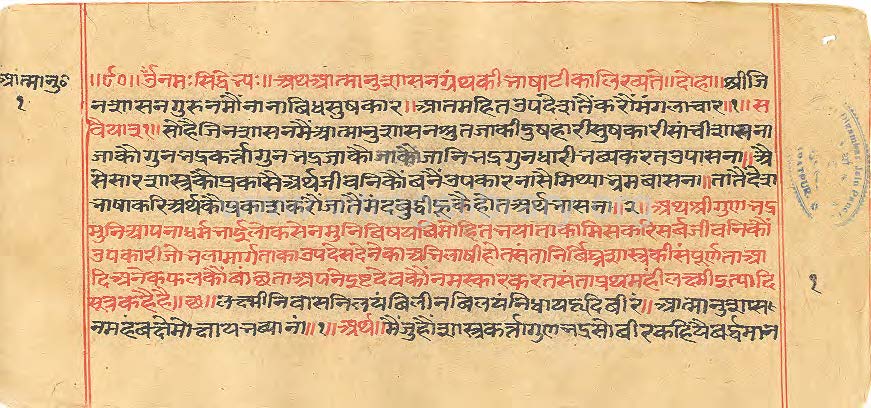 आत्मानु॰
१
॥ॐ नमः सिद्धेभ्यः॥ अथ आत्मानुशासन ग्रंथ की भाषा टीका लिख्यते॥ दोहा॥ श्री जि
न शासन गुरु नमौं नाना विध सुषकार॥ आतम हित उपदेश तैं करौं मंगलाचार॥१॥ स
वैया ३१॥ सोहै जिन शासन मैं आत्मानुशासन श्रुत जाकी दुषहारी सुषकारी सांची शासना
जाकौ गुनभद्र कर्त्ता गुनभद्र जाकौं जानि भद्र गुनधारी भव्य करत उपासना॥ अै
सै सार शास्त्र कौं प्रकासै अर्थ जीवनि कौं बनैं उपकार नासै मिथ्या भ्रम बासना॥ तातैं देश
भाषा करि अर्थ कौ प्रकाश करौं जातैं मंद बुद्धी हू कै होत अर्थ भासना॥२॥ अथ श्री गुणभद्र
मुनि अपना धर्म भाई लोकसेन मुनि विषय विमोहित भया ताका मिस करि सर्व जीवनि कौं
उपकारी जो भला मार्ग ताका उपदेस देने का अभिलाषी होत संता निर्विघ्न शास्त्र की संपूर्णता आ
दि अनेक फल कौं बांछता अपने इष्टदेव कौं नमस्कार करत संता प्रथम ही लक्ष्मी इत्यादि
सूत्र कहै है॥ लक्ष्मीनिवासनिलयं विलीनविलयं निधाय हृदि वीरं॥ आत्मानुशास
नमहं वक्ष्ये मोक्षाय भव्यानां॥१॥ अर्थ॥ मैं जु हौं शास्त्र कर्त्ता गुणभद्र सो वीर कहिये वर्द्धमान
१
UDAIPUR